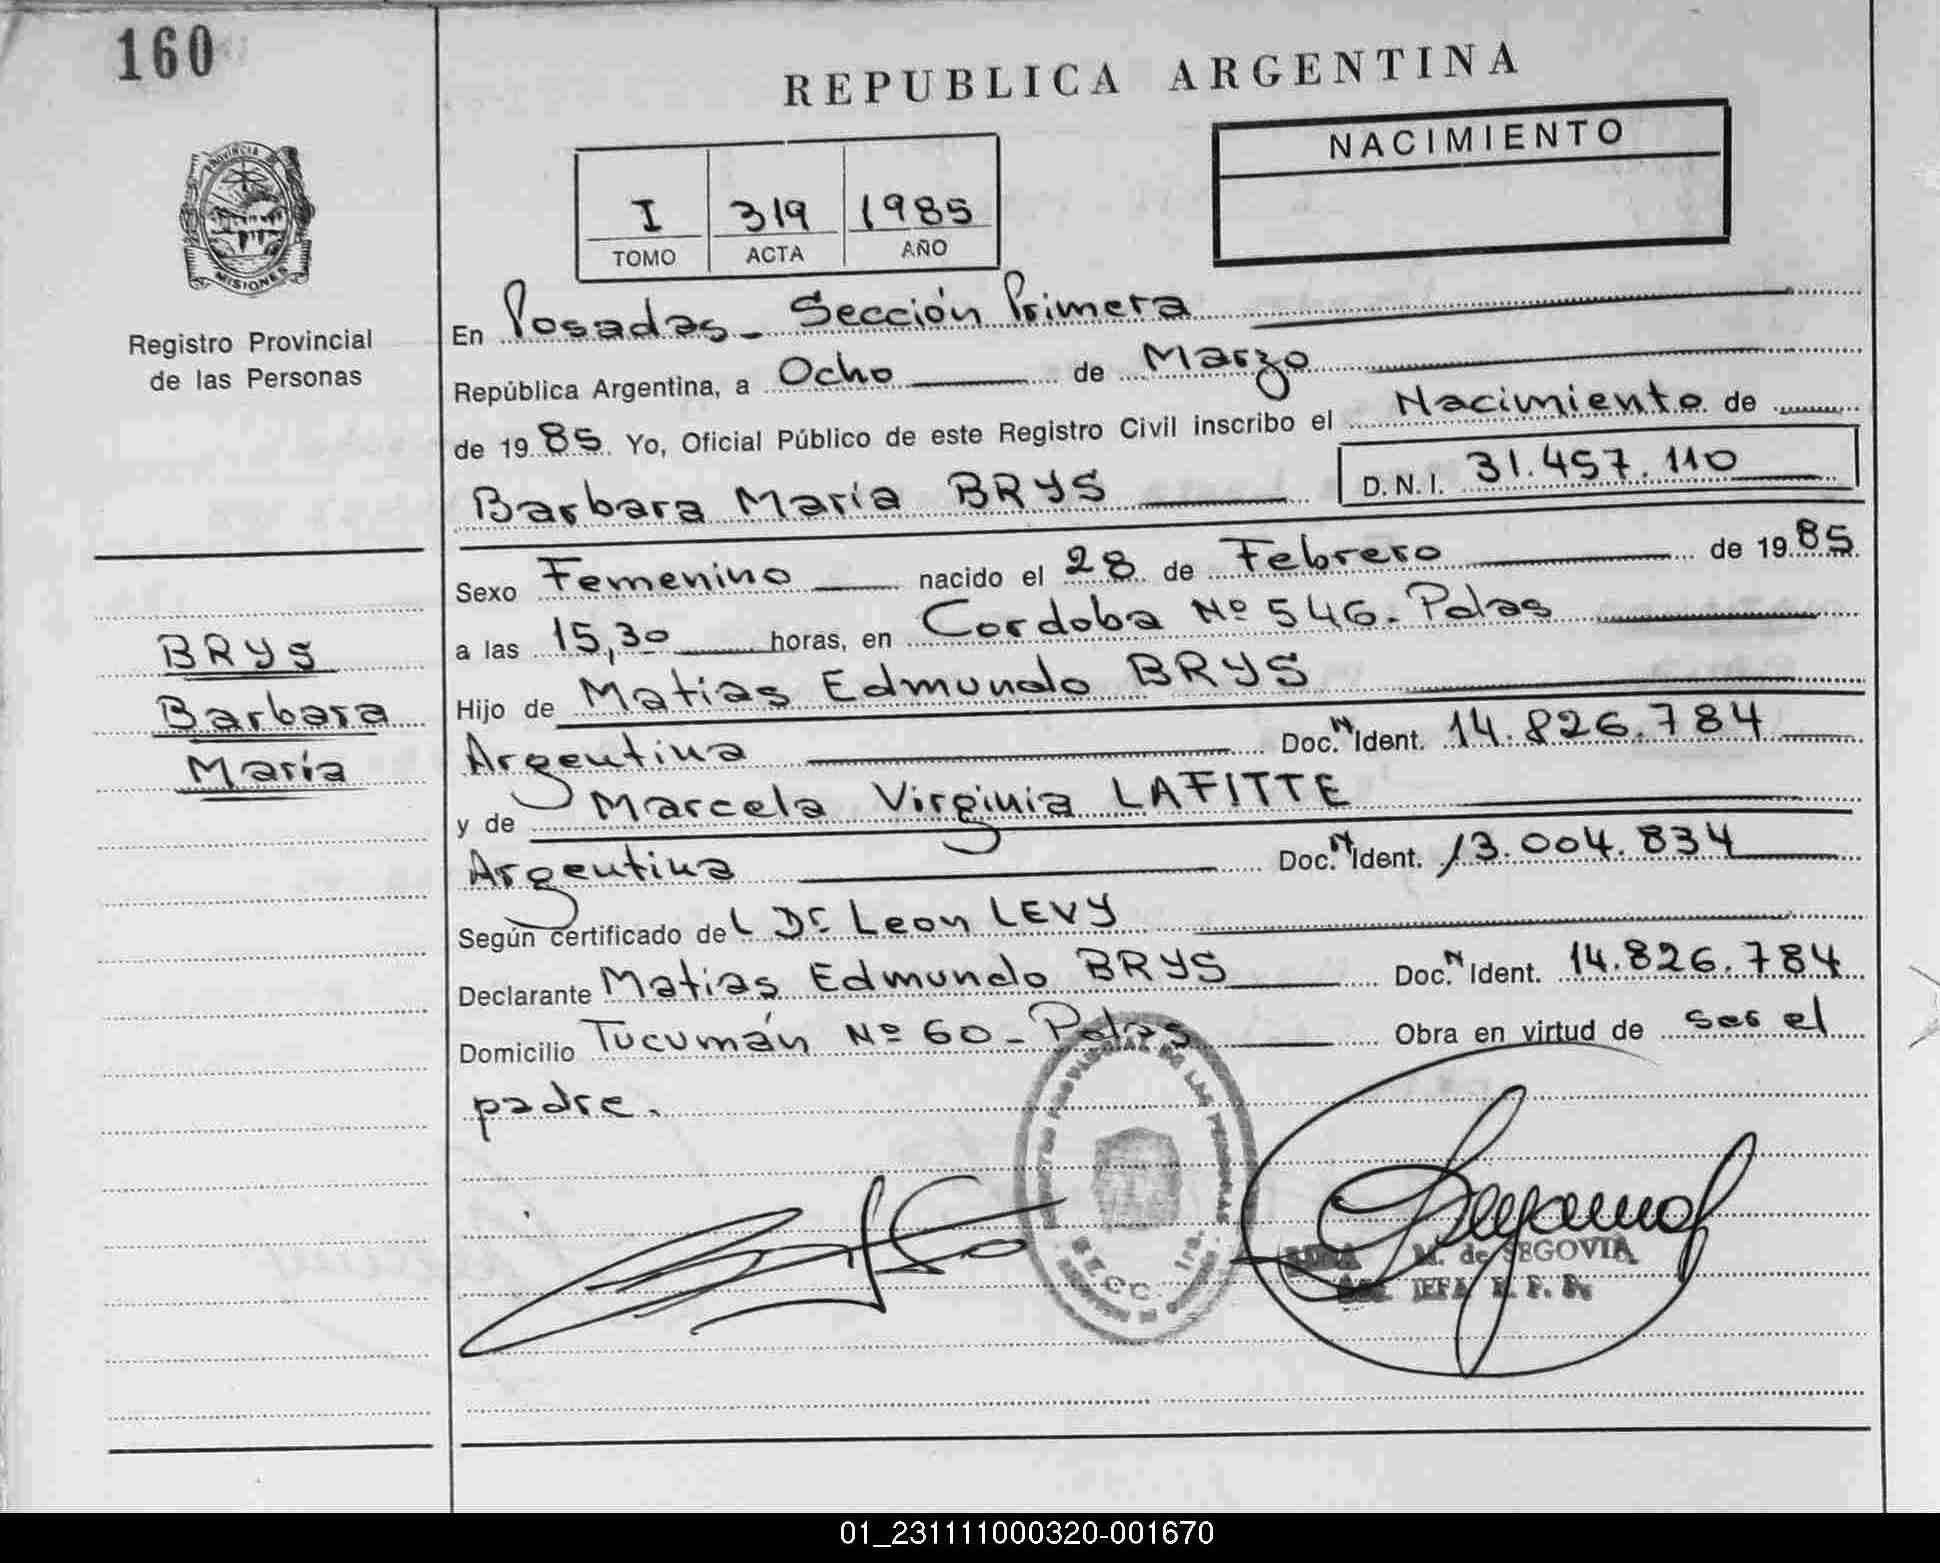 160
REPUBLICA ARGENTINA
NACIMIENTO
I 319 1985
TOMO ACTA AÑO
PROVINCIA DE
MISIONES
Registro Provincial
de las Personas
BRYS
Barbara
María
En Posadas - Sección Primera
República Argentina, a Ocho de Marzo
de 1985 Yo, Oficial Público de este Registro Civil inscribo el Nacimiento de
Barbara María BRYS D.N.I. 31.457.110
Sexo Femenino nacido el 28 de Febrero de 1985
a las 15,30 horas, en Cordoba Nº 546. Pdas
Hijo de Matias Edmundo BRYS
Argentina Doc. N Ident. 14.826.784
y de Marcela Virginia LAFITTE
Argentina Doc. N Ident. 13.004.834
Según certificado del Dr Leon LEVY
Declarante Matias Edmundo BRYS Doc. N Ident. 14.826.784
Domicilio Tucumán Nº 60 - Pdas Obra en virtud de ser el
padre.
PROVINCIAL DE LAS PERSONAS
1ra.
M. de SEGOVIA
JEFA R. P. P.
01_231111000320-001670